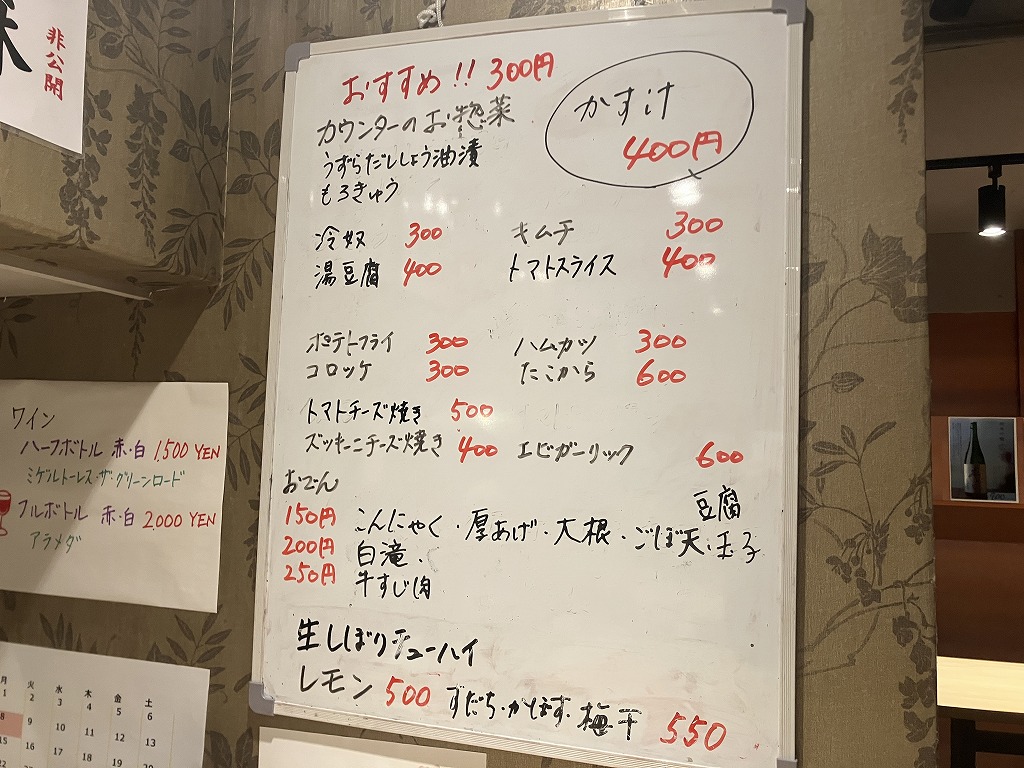 非公開
おすすめ!! 300円
カウンターのお惣菜
うずらだししょう油漬
もろきゅう
かす汁
400円
冷奴 300 キムチ 300
湯豆腐 400 トマトスライス 400
ポテトフライ 300 ハムカツ 300
コロッケ 300 たこから 600
トマトチーズ焼き 500
ズッキーニチーズ焼き 400 エビガーリック 600
おでん
豆腐
150円 こんにゃく・厚あげ・大根・ごぼ天・玉子
200円 白滝、
250円 牛すじ肉
生しぼりチューハイ
レモン 500 すだち・かぼす・梅干 550
ワイン
ハーフボトル 赤・白 1,500 YEN
ミゲルトーレス・ザ・グリーンロード
フルボトル 赤・白 2000 YEN
アラメダ
月 火 水 木 金 土
1 2 3 4 5 6
8 9 10 11 12 13
15 16 17 18 19 20